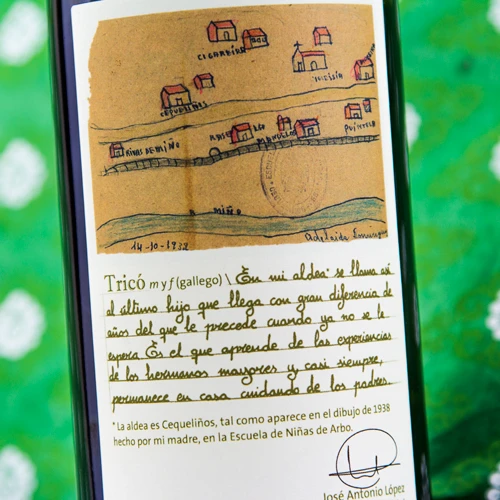 CIGARREIRA
IGLESIA
CEQUELIÑES
RIVAS DE MIÑO
R. MIÑO
14-10-1938
Adelaida
Tricó m y f (gallego) \ En mi aldea* se llama así
al último hijo que llega con gran diferencia de
años del que le precede cuando ya no se le
espera. Es el que aprende de las experiencias
de los hermanos mayores y, casi siempre,
permanece en casa cuidando de los padres.
* La aldea es Cequeliños, tal como aparece en el dibujo de 1938
hecho por mi madre, en la Escuela de Niñas de Arbo.
José Antonio López